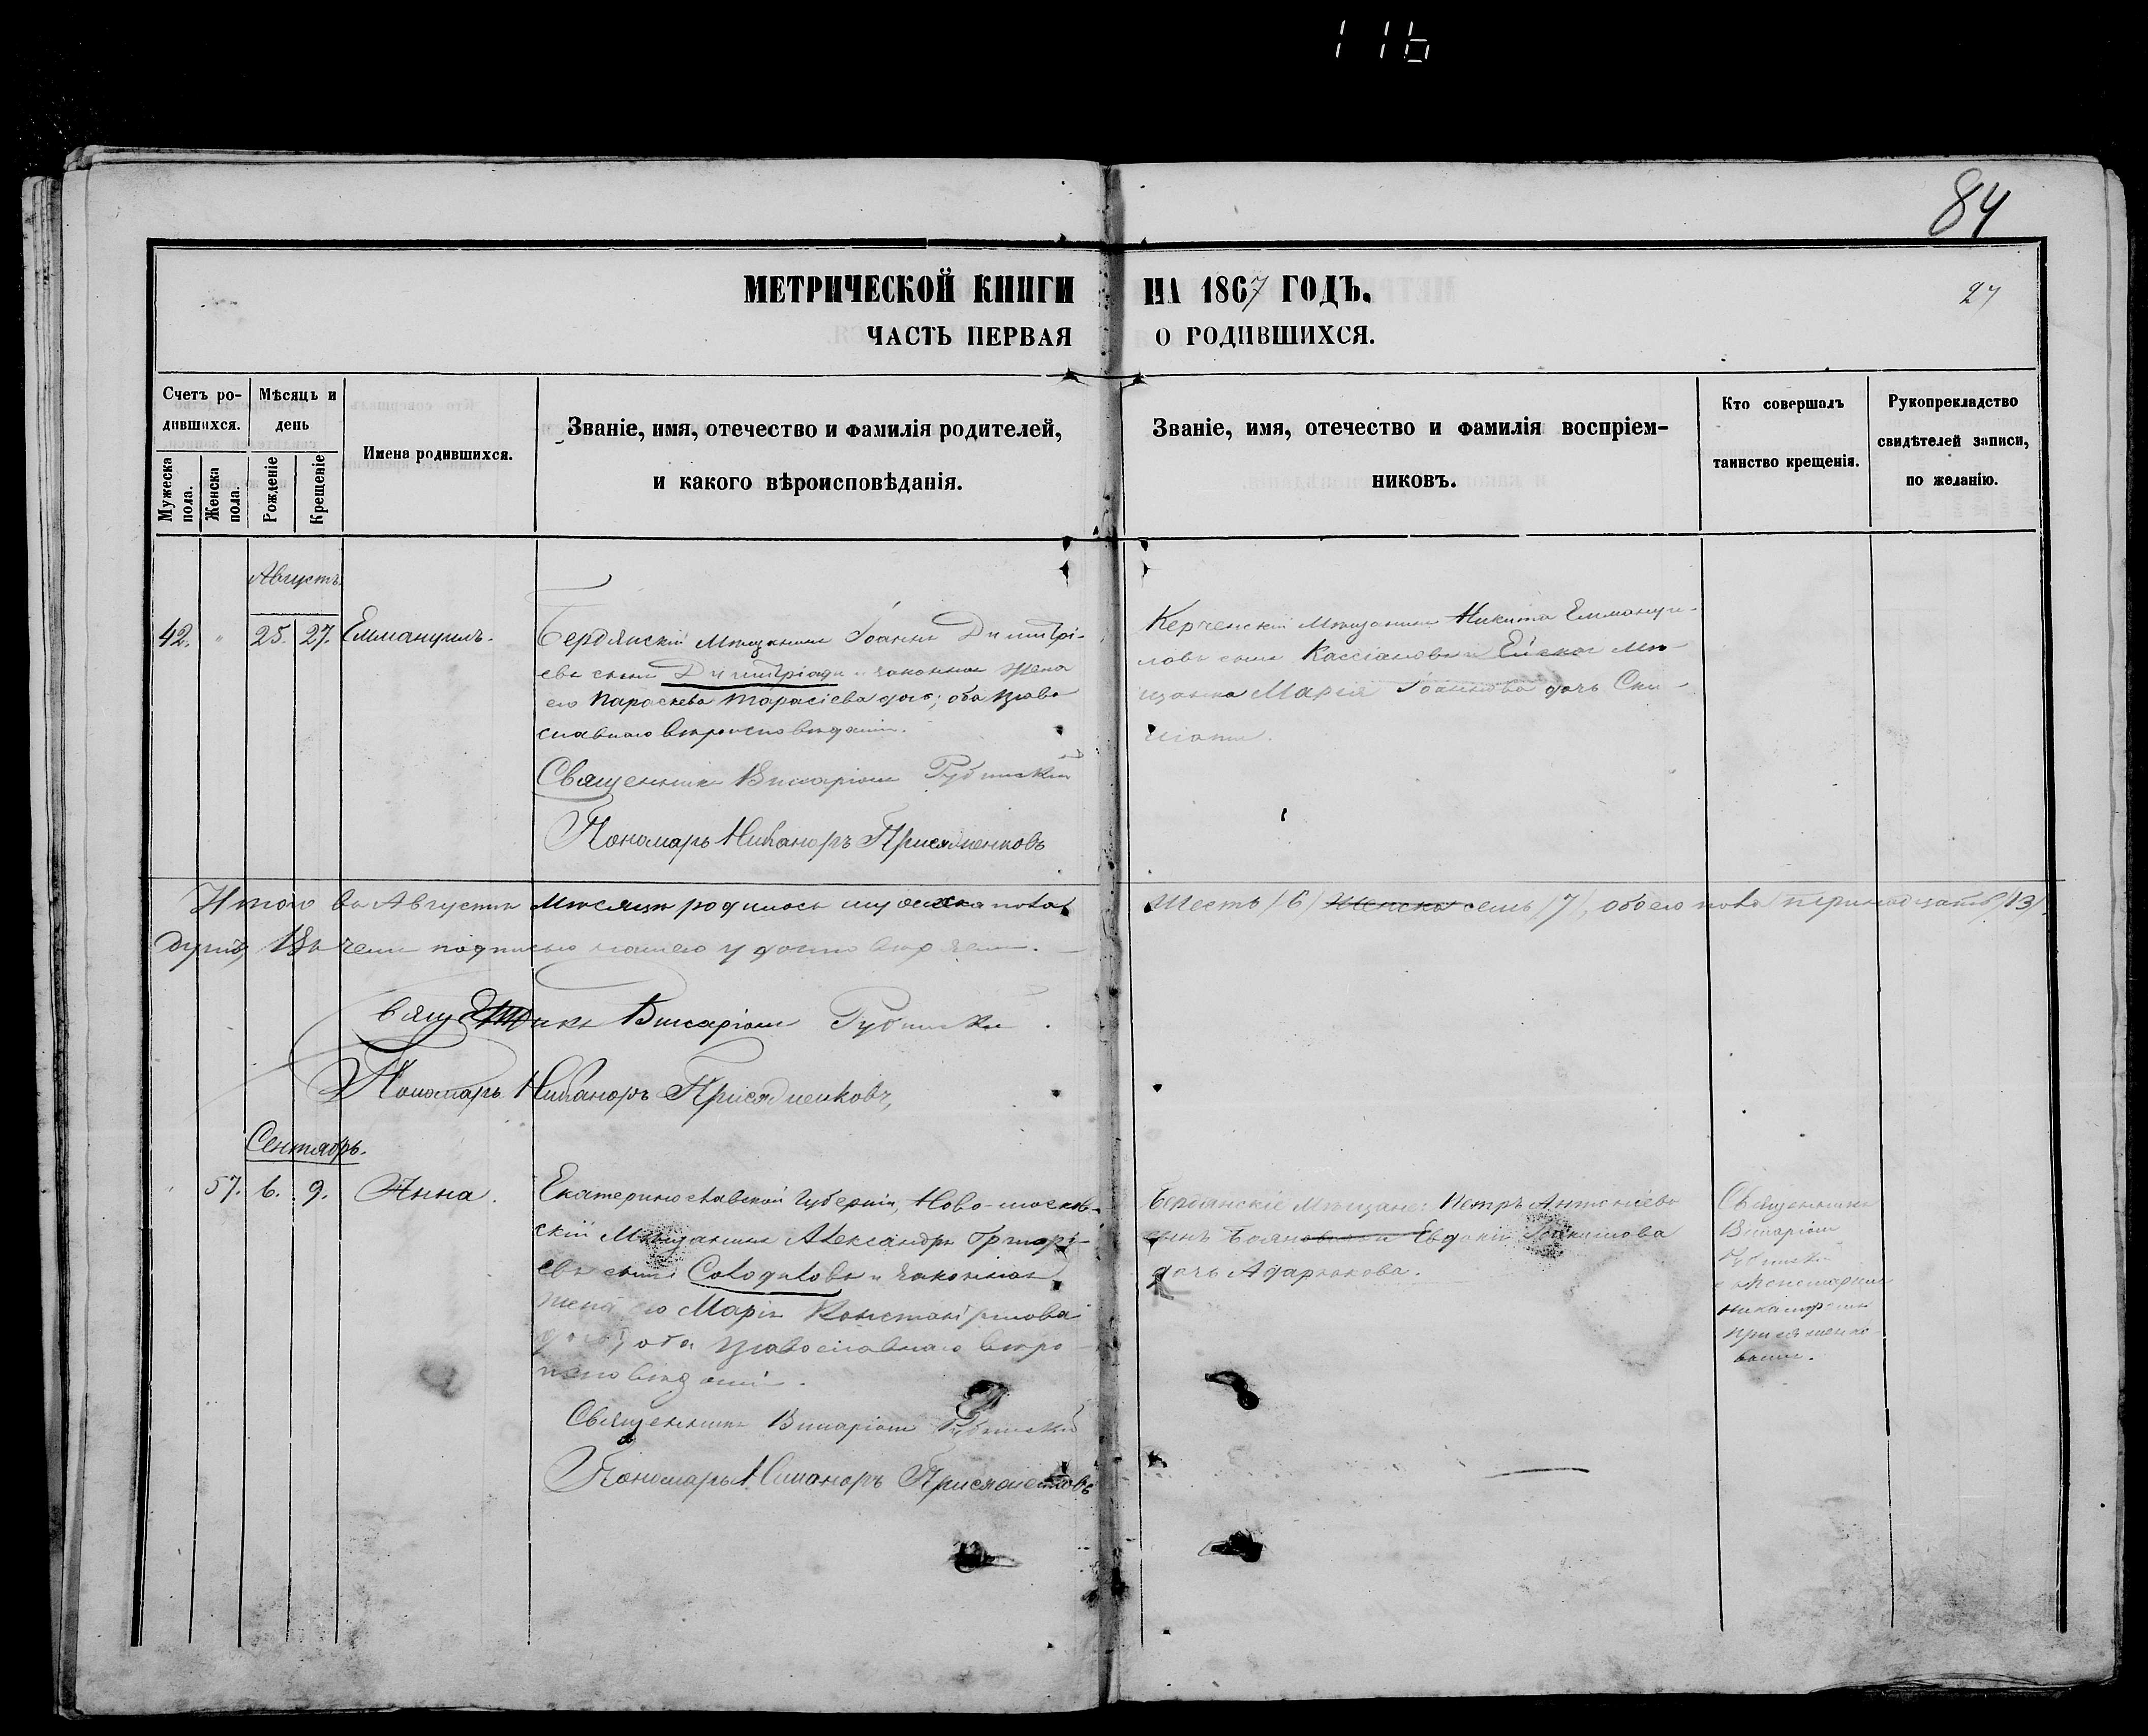 116
84
МЕТРИЧЕСКОЙ КНИГИ НА 1867 ГОДЪ.
27
ЧАСТЬ ПЕРВАЯ О РОДИВШИХСЯ.
Счетъ ро-
дившихся.
Мужеска пола.
Женска пола.
Мѣсяцъ и
день
Рожденіе
Крещеніе
Имена родившихся.
Званіе, имя, отечество и фамилія родителей,
и какого вѣроисповѣданія.
Званіе, имя, отечество и фамилія воспріем-
никовъ.
Кто совершалъ
таинство крещенія.
Рукоприкладство
свидѣтелей записи,
по желанію.
Августъ
42. " 25. 27. Еммануилъ.
Бердянскій Мѣщанинъ Іоаннъ Димитрі-
евъ сынъ Димитріади и законная жена
его Параскева Тарасіева дочь; оба право
славнаго вѣроисповѣданія.
Священникъ Виссаріонъ
Пономарь Никаноръ Присяженковъ
Керченскій Мѣщанинъ Никита Еммануи-
ловъ сынъ Кассіановъ и Ейская Мѣ-
щанка Марія Іоаннова дочь
Итого въ Августѣ Мѣсяцѣ родилось мужеска пола шесть (6) женска семь (7), обоего пола тринадцать (13)
душъ, Въ чемъ подписью нашею удостовѣряемъ.
Священникъ Виссаріонъ
Пономарь Никаноръ Присяженковъ,
Сентябрь.
57. 6. 9. Анна.
Екатеринославской Губерніи, Ново-москов-
скій Мѣщанинъ Александръ Григорі-
евъ сынъ Солодиловъ и законная
жена его Марія Константинова
дочь, оба православнаго вѣро
исповѣданія.
Священникъ Виссаріонъ
Пономарь Никаноръ Присяженковъ
Бердянскіе Мѣщане: Петръ Антоніевъ
сынъ и Евдокія Іоакимова
дочь Адарюкова.
Священникъ
Виссаріонъ
съ Пономаремъ
Никаноромъ
Присяженко
вымъ.